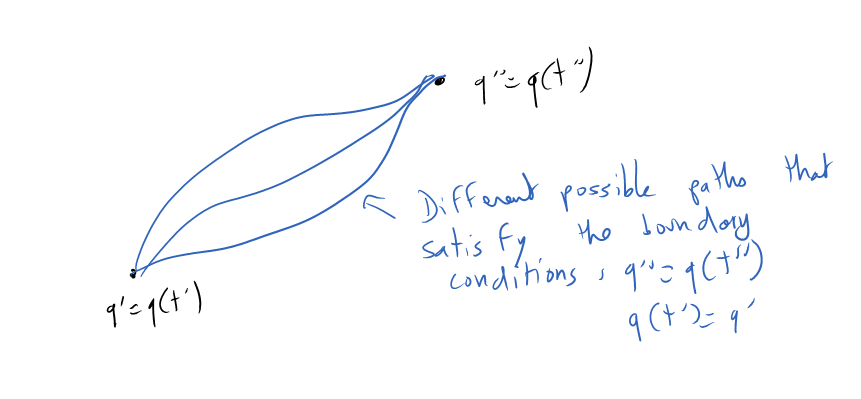 q'' = q(t'')
Different possible paths that
satisfy the boundary
conditions, q'' = q(t'')
q(t') = q'
q' = q(t')